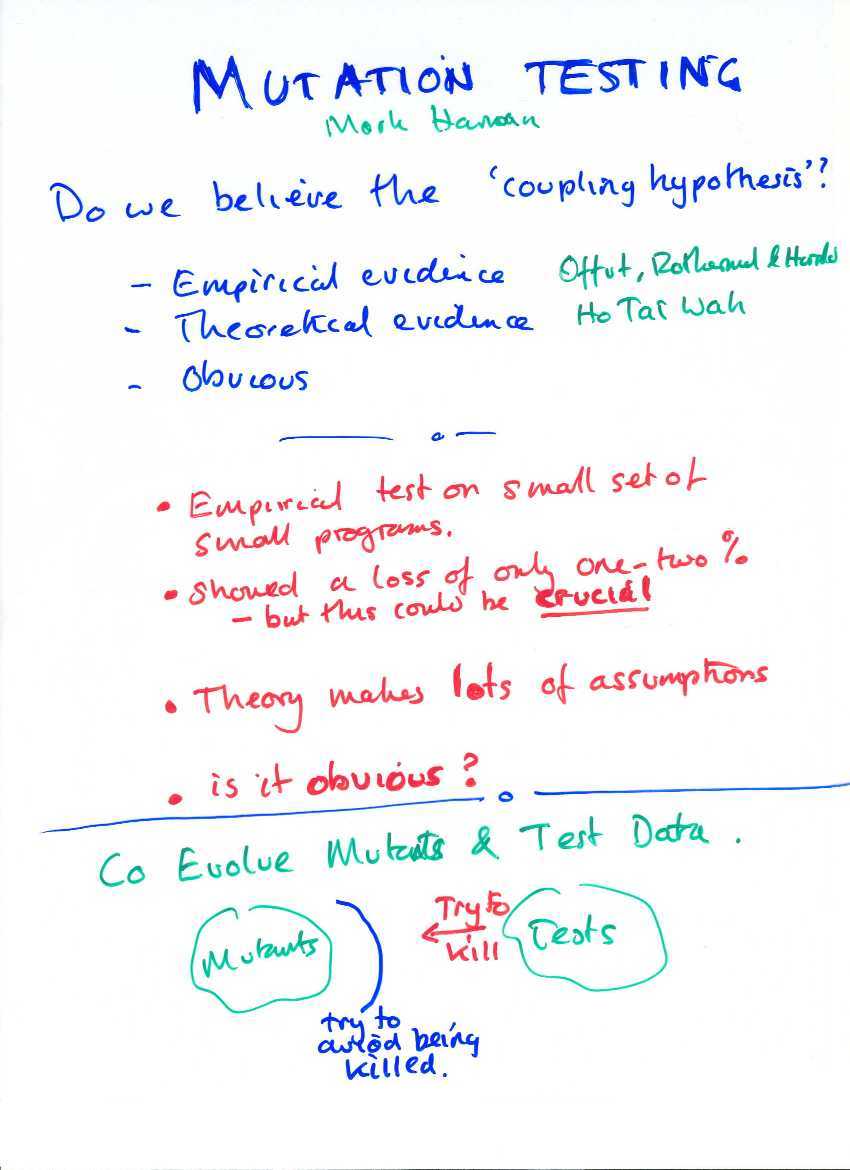 MUTATION TESTING
Mark Harman
Do we believe the 'coupling hypothesis'?
- Empirical evidence Offut, Rothermel & Harrold
- Theoretical evidence Ho Tai Wah
- Obvious
• Empirical test on small set of
small programs.
• Showed a loss of only one-two %
- but this could be crucial
• Theory makes lots of assumptions
• is it obvious?
Co Evolve Mutants & Test Data.
Try to
Mutants Tests
kill
try to
avoid being
killed.